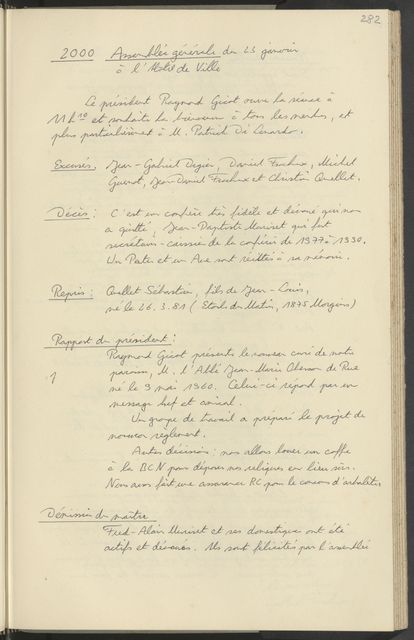 282
2000 Assemblée générale du 23 janvier
à l'Hôtel de Ville
Le président Raymond Gicot ouvre la séance à
11h10 et souhaite la bienvenue à tous les membres, et
plus particulièrement à M. Patrick Di Lenardo.
Excusés. Jean-Gabriel Daniel Frochaux, Michel
Jean-Daniel Frochaux et Christin Quellet.
Décès : C'est un confrère très fidèle et dévoué qui nous
a quitté, Jean-Baptiste Muriset qui fut
secrétaire-caissier de la confrérie de 1977 à 1990.
Un Pater et un Ave sont récités à sa mémoire.
Repris : Quellet Sébastien, fils de Jean-Louis,
né le 26.3.81 (Etoile du Matin, 1875 Morgins)
Rapport du président :
Raymond Gicot présente le nouveau curé de notre
paroisse, M. l'Abbé Jean-Marie de
né le 9 mai 1960. Celui-ci répond par un
message bref et amical.
Un groupe de travail a préparé le projet de
nouveau règlement.
Autres décisions : nous allons louer un coffre
à la BCN pour déposer nos reliques en lieu sûr.
Nous avons fait une assurance RC pour le concours d'arbalète.
Démission du maître
Fred-Alain Muriset et ses domestiques ont été
actifs et dévoués. Ils sont félicités par l'assemblée